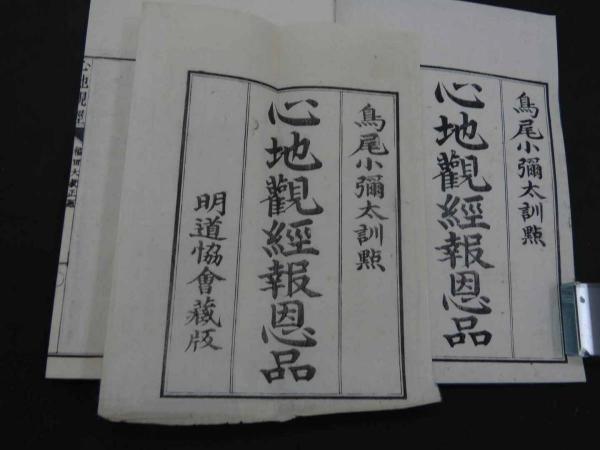 鳥尾小彌太訓點
心地觀經報恩品
鳥尾小彌太訓點
心地觀經報恩品
明道協會藏版
心地觀經